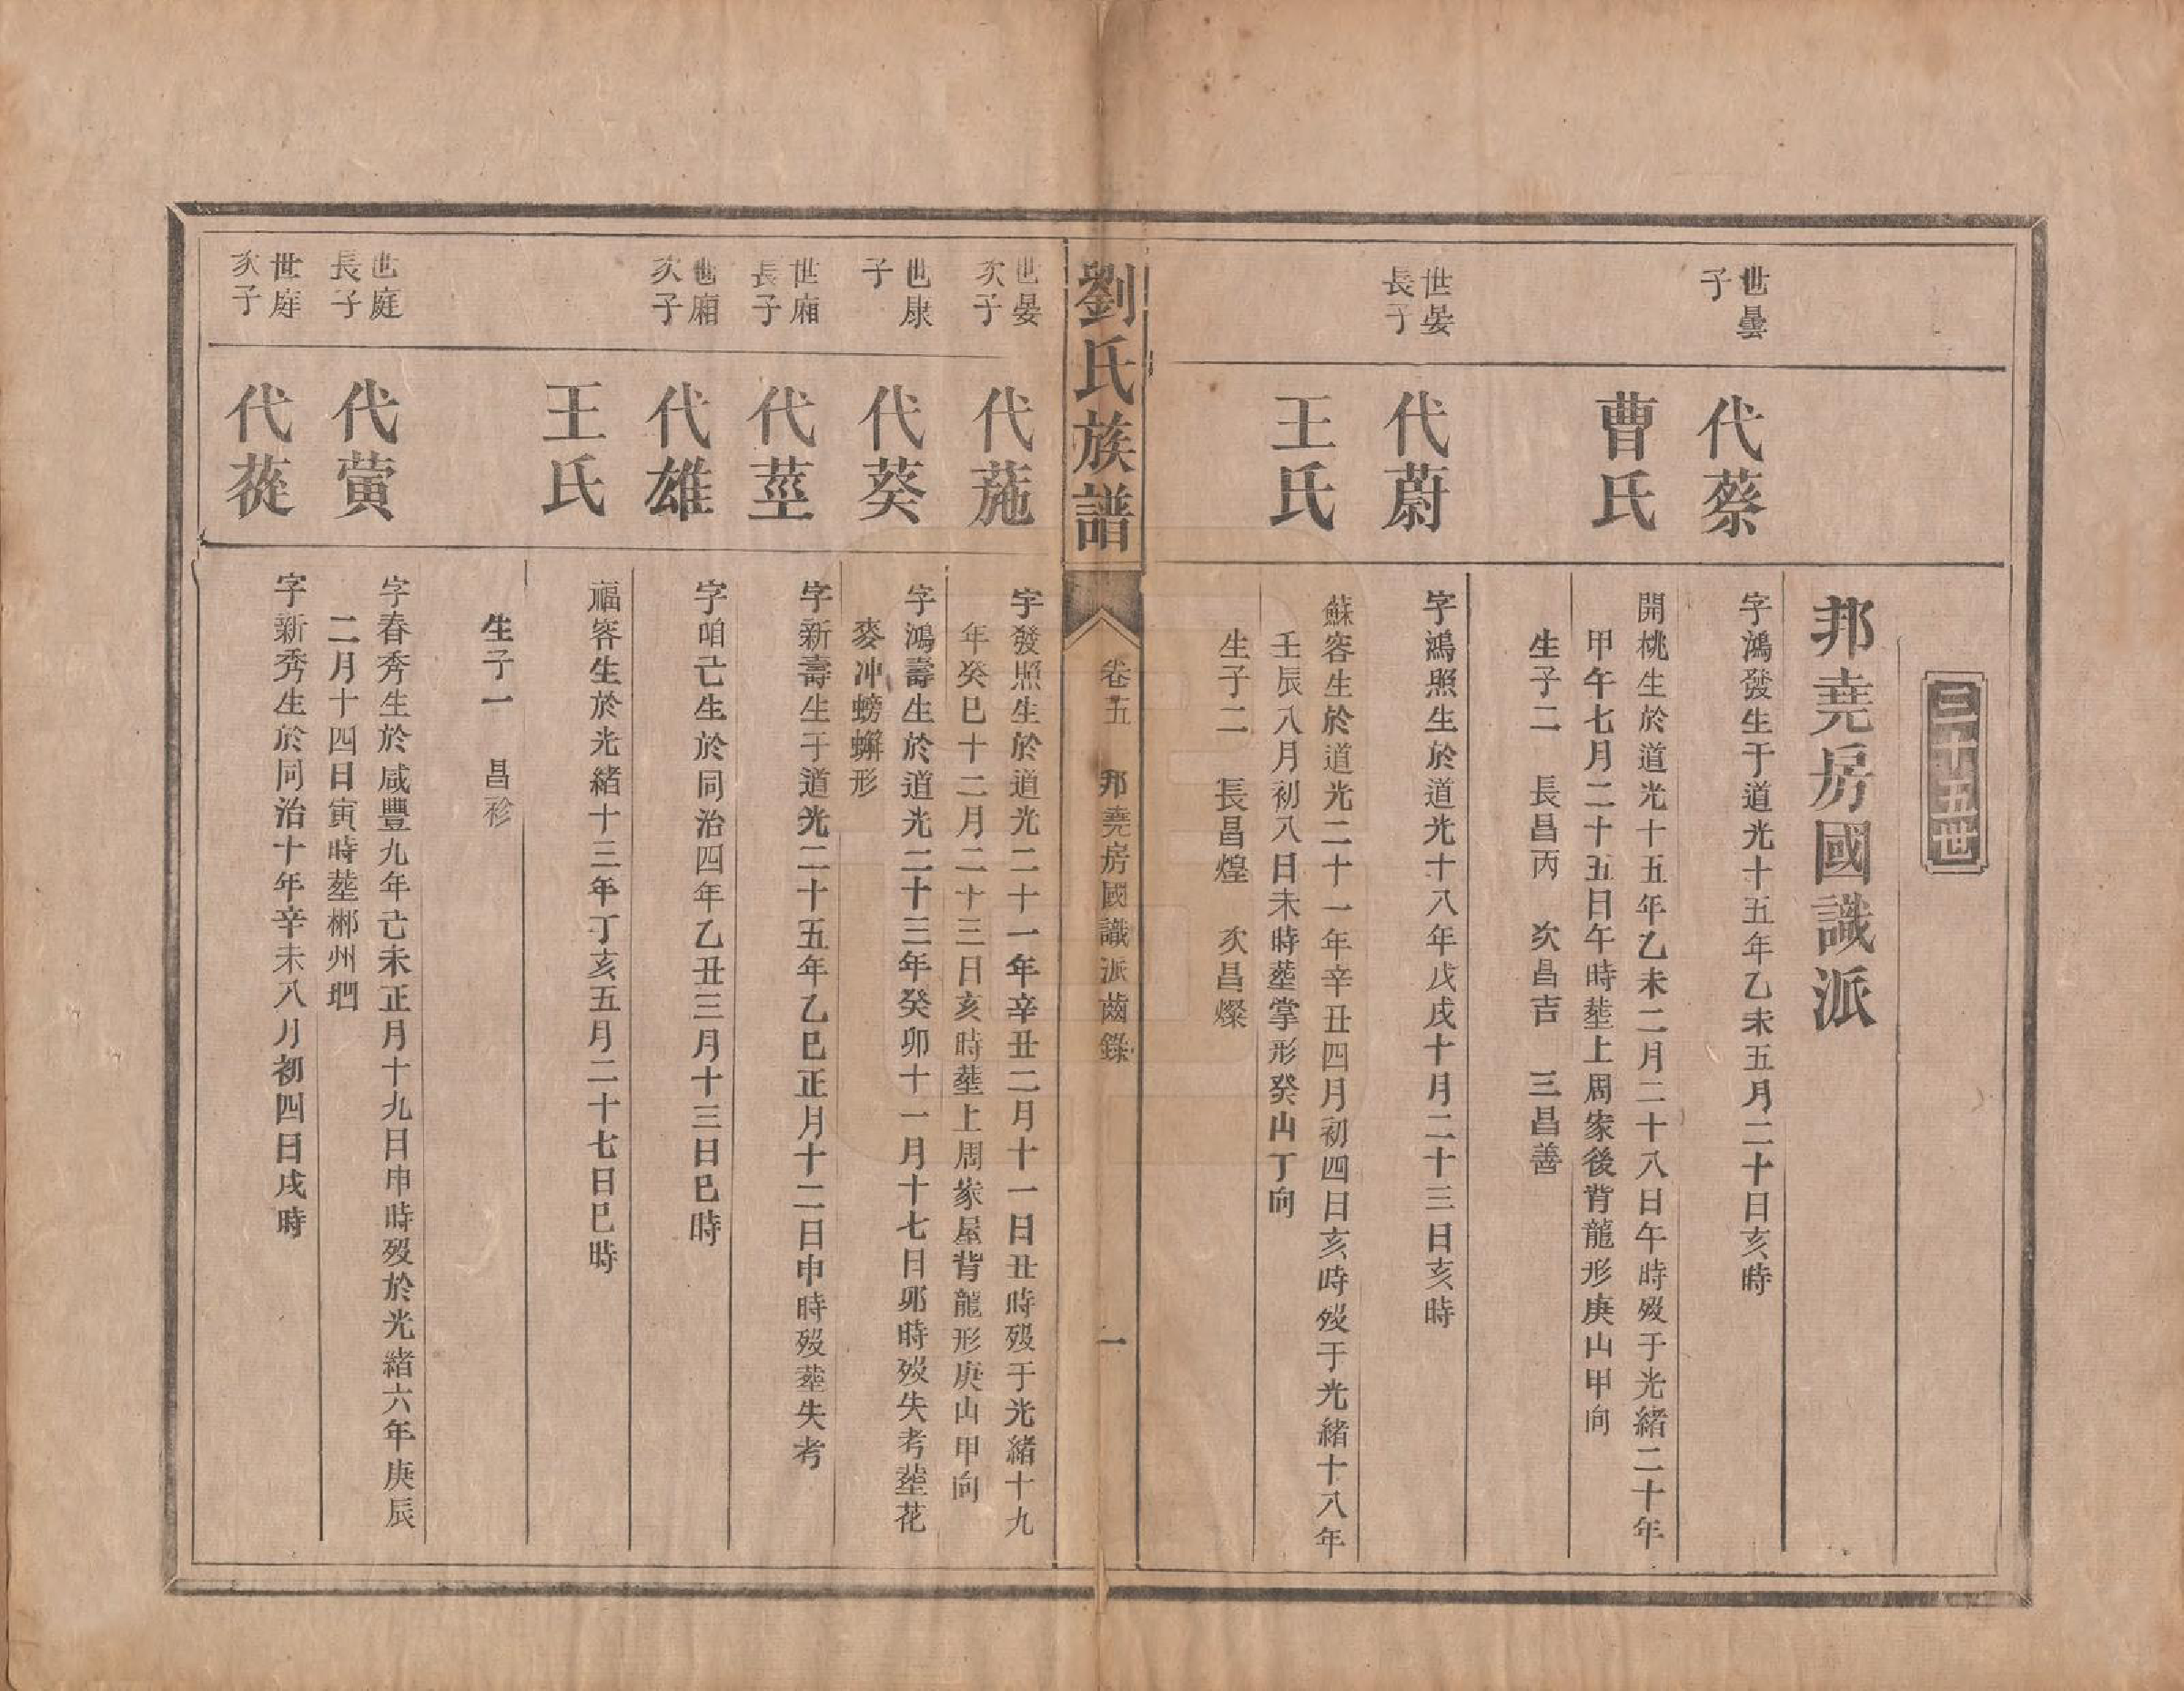 三十五世
邦堯房國識派
世曇子
代蔡
字鴻發生于道光十五年乙未五月二十日亥時
曹氏
開桃生於道光十五年乙未二月二十八日午時歿于光緒二十年
甲午七月二十五日午時塟上周家後背龍形庚山甲向
生子二 長昌丙 次昌吉 三昌善
世晏長子
代蔚
字鴻照生於道光十八年戊戌十月二十三日亥時
王氏
蘇容生於道光二十一年辛丑四月初四日亥時歿于光緒十八年
壬辰八月初八日未時塟掌形癸山丁向
生子二 長昌煌 次昌燦
劉氏族譜
卷五 邦堯房國識派齒錄 一
世晏次子
代葹
字發照生於道光二十一年辛丑二月十一日丑時歿于光緒十九
年癸巳十二月二十三日亥時塟上周家屋背龍形庚山甲向
世康子
代葵
字鴻壽生於道光二十三年癸卯十一月十七日卯時歿失考塟花
麥冲螃蠏形
世廂長子
代莖
字新壽生于道光二十五年乙巳正月十二日申時歿塟失考
世廂次子
代雄
字咱古生於同治四年乙丑三月十三日巳時
王氏
福容生於光緒十三年丁亥五月二十七日巳時
生子一 昌袗
世庭長子
代黄
字春秀生於咸豐九年己未正月十九日申時歿於光緒六年庚辰
二月十四日寅時塟郴州
世庭次子
代蓯
字新秀生於同治十年辛未八月初四日戌時